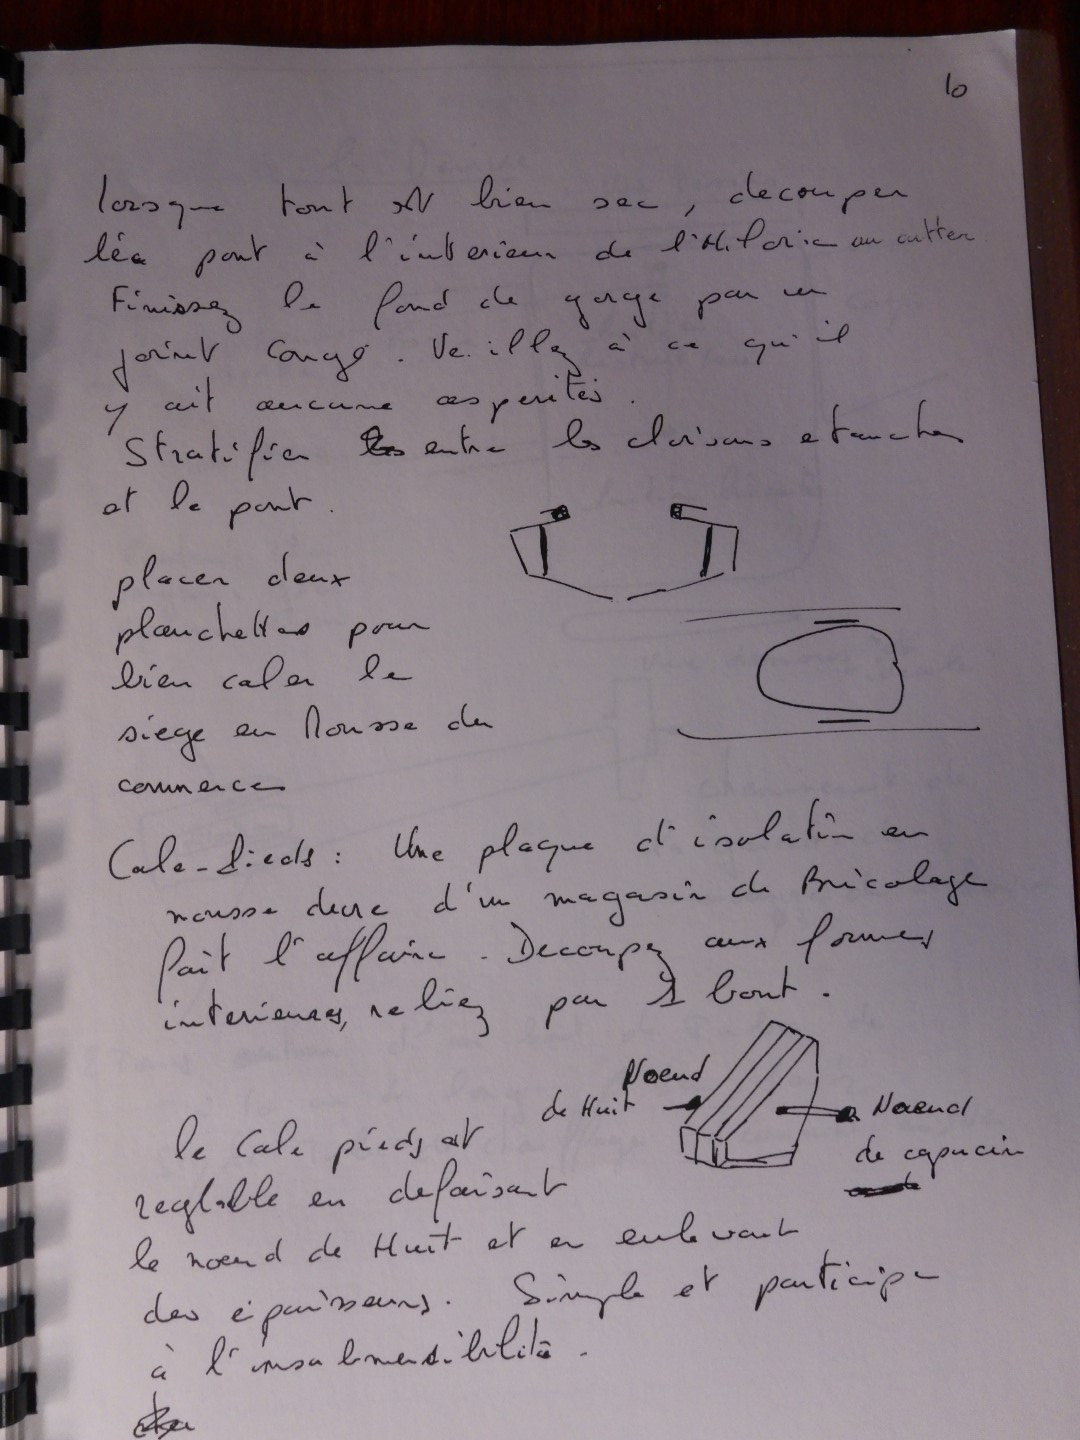 10
lorsque tout est bien sec, decouper
pont à l'interieur de au cutter
Finissez le fond de gorge par un
joint congé. Veillez à ce qu'il
y ait aucune asperités.
Stratifier entre les cloisons etanches
et le pont.
placer deux
planchettes pour
bien caler le
siege en Mousse du
commerce
Cale-Pieds : Une plaque d'isolation en
mousse dure d'un magasin de Bricolage
fait l'affaire. Decoupez aux formes
interieures, reliez par 1 bout.
Noeud
de Huit
Noeud
de capucin
le Cale pieds est
reglable en defaisant
le noeud de Huit et en enlevant
des épaisseurs. Simple et participe
à l'insubmersibilité.